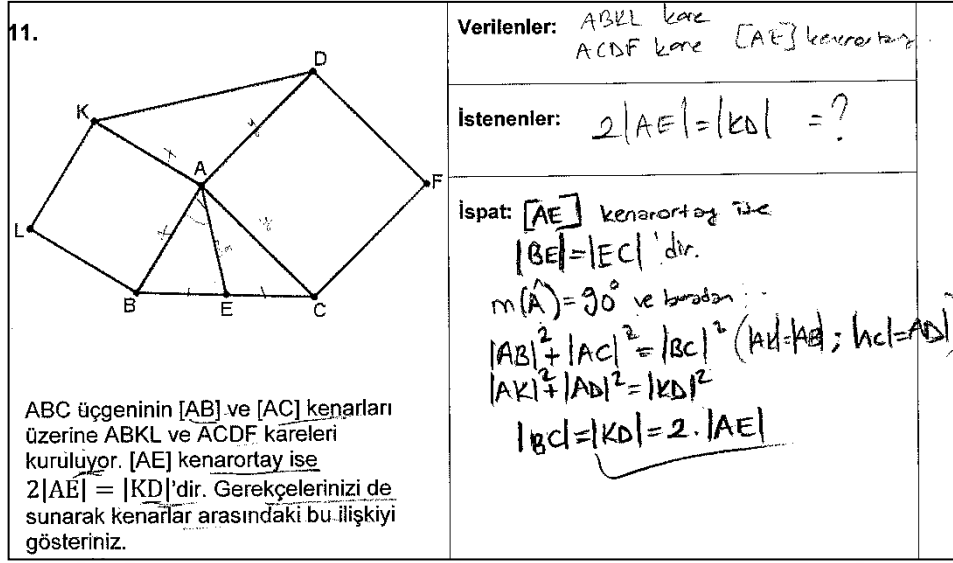 11.
D
K
A
F
L
B
E
C
x
x
ABC üçgeninin [AB] ve [AC] kenarları
üzerine ABKL ve ACDF kareleri
kuruluyor. [AE] kenarortay ise
2|AE| = |KD|'dir. Gerekçelerinizi de
sunarak kenarlar arasındaki bu ilişkiyi
gösteriniz.
Verilenler: ABKL kare
ACDF kare [AE] kenarortay.
İstenenler: 2|AE|=|KD| =?
İspat: [AE] kenarortay ise
|BE|=|EC| 'dir.
m(Â)=90° ve buradan
|AB|²+|AC|²=|BC|² (|AK|=|AB| ; |AC|=|AD|)
|AK|²+|AD|²=|KD|²
|BC|=|KD|=2.|AE|